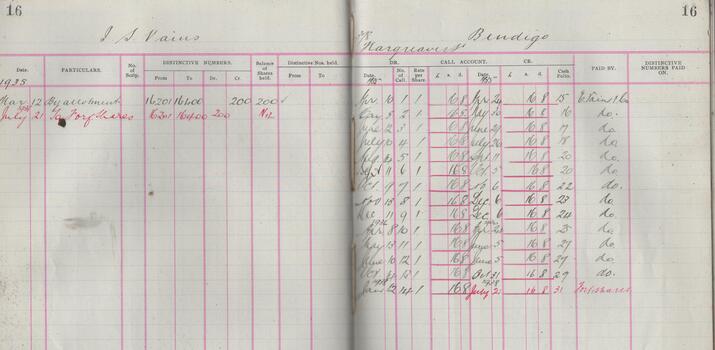 16
I S Vains
Bendigo
16
Hargreaves St
DISTINCTIVE NUMBERS.
Distinctive Nos. held.
DR. CALL ACCOUNT. CR.
Date. PARTICULARS. No. of Scrip. From To Dr. Cr. Balance of Shares held. From To
Date. No. of Call. Rate per Share £ s. d. Date. £ s. d. Cash Folio. PAID BY. DISTINCTIVE NUMBERS PAID ON.
1935
Mar 12 By allotment 16201 16400 200 200
July 21 To Forf Shares 16201 16400 200 Nil
Apr 10 1 1 16 8 Apr 24 16 8 15
May 8 2 1 16 8 May 30 16 8 16 do.
June 12 3 1 16 8 June 27 16 8 17 do.
July 10 4 1 16 8 July 26 16 8 18 do.
Aug 5 1 16 8 11 16 8 20 do.
Sept 11 6 1 16 8 Oct 5 16 8 20 do.
Oct 9 7 1 16 8 Nov 6 16 8 22 do.
Nov 13 8 1 16 8 Dec 6 16 8 23 do.
Dec 11 9 1 16 8 Dec 6 16 8 24 do.
Apr 8 10 1 16 8 Apr 16 8 25 do.
May 13 11 1 16 8 June 5 16 8 27 do.
June 10 12 1 16 8 June 5 16 8 27 do.
Oct 13 1 16 8 Oct 31 16 8 29 do.
1938
12 14 1 16 8 July 21 16 8 31 Forf shares